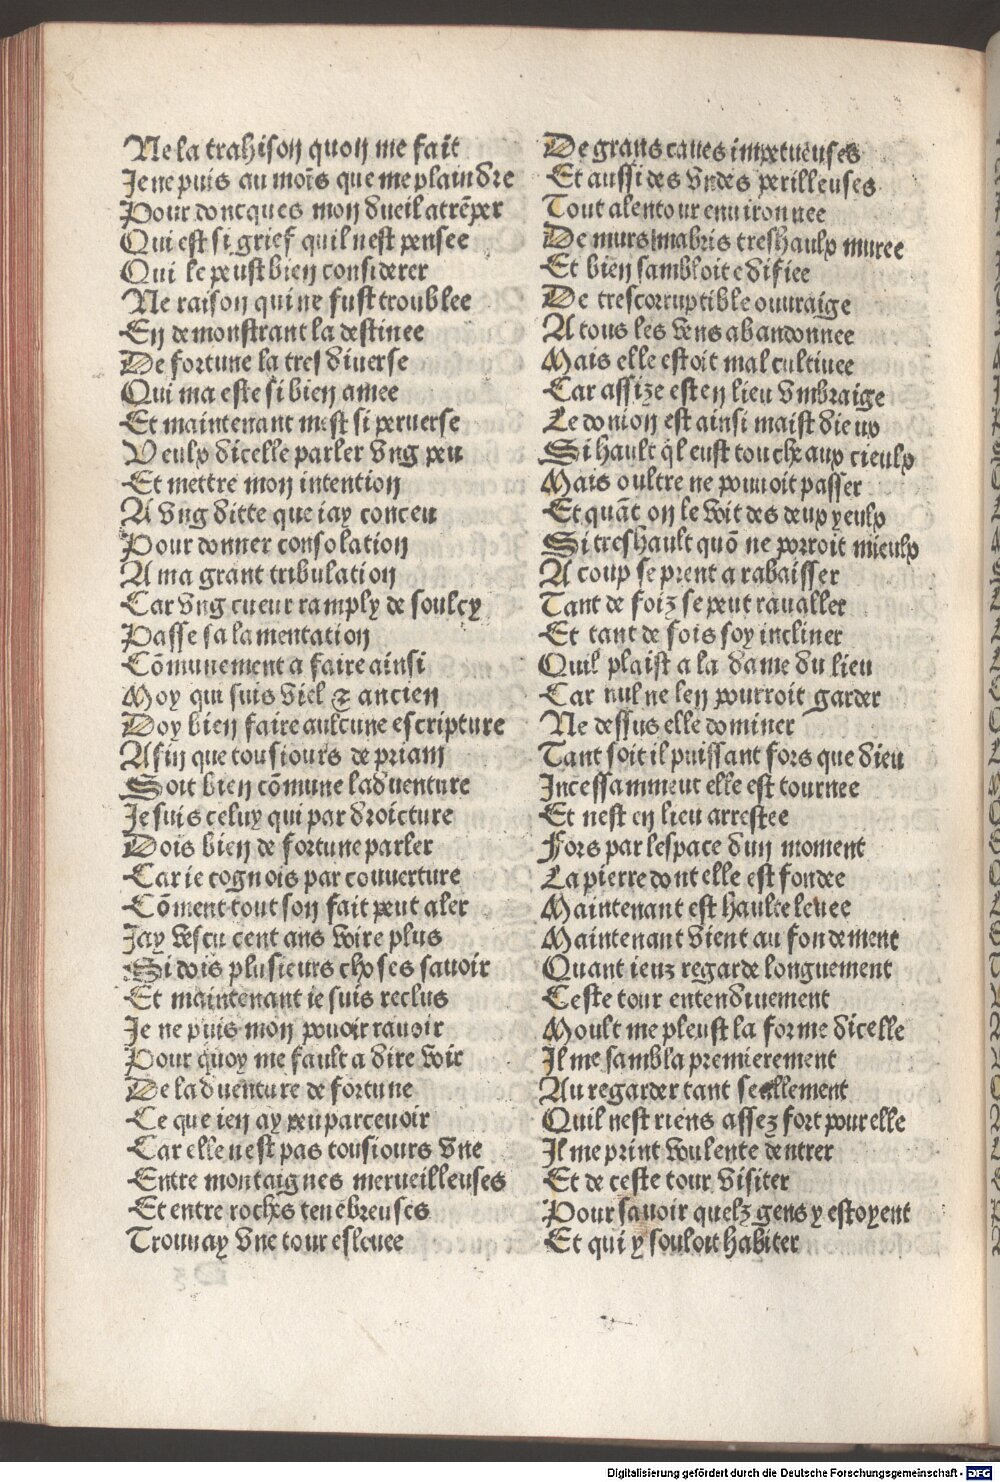 Ne la trahison quon me fait
Je ne puis au moīs que me plaindre
Pour doncques mon dueil atrēper
Qui est si grief quil nest pensee
Qui le peust bien considerer
Ne raison qui ne fust troublee
En demonstrant la destinee
De fortune la tres diuerse
Qui ma este si bien amee
Et maintenant mest si peruerse
Veulx dicelle parler vng peu
Et mettre mon intention
A vng ditte que iay conceu
Pour donner consolation
A ma grant tribulation
Car vng cueur ramply de soulcy
Passe sa lamentation
Cōmunement a faire ainsi
Moy qui suis viel & ancien
Doy bien faire aulcune escripture
Afin que tousiours de priam
Soit bien cōmune laduenture
Je suis celuy qui par droicture
Dois bien de fortune parler
Car ie cognois par couuerture
Cōment tout son fait peut aler
Jay vescu cent ans voire plus
Si dois plusieurs choses sauoir
Et maintenant ie suis reclus
Je ne puis mon pouoir rauoir
Pour quoy me fault a dire voir
De laduenture de fortune
Ce que ien ay peu parceuoir
Car elle nest pas tousiours vne
Entre montaignes merueilleuses
Et entre roches tenebreuses
Trouuay vne tour esleuee
De grans caues impetueuses
Et aussi des vndes perilleuses
Tout alentour enuironnee
De murs mabris treshaulx muree
Et bien sambloit edifiee
De trescorruptible ouuraige
A tous les vens abandonnee
Mais elle estoit mal cultiuee
Car assize est en lieu vmbraige
Le donion est ainsi maist dieux
Si hault ql eust touche aux cieulx
Mais oultre ne pouuoit passer
Et quāt on le voit des deux yeulx
Si treshault quō ne porroit mieulx
A coup se prent a rabaisser
Tant de foiz se peut raualler
Et tant de fois soy incliner
Quil plaist a la dame du lieu
Car nul ne len pourroit garder
Ne dessus elle dominer
Tant soit il puissant fors que dieu
Incessamment elle est tournee
Et nest en lieu arrestee
Fors par lespace dun moment
La pierre dont elle est fondee
Maintenant est haulte leuee
Maintenant vient au fondement
Quant ieuz regarde longuement
Ceste tour entendiuement
Moult me pleust la forme dicelle
Il me sambla premierement
Au regarder tant seellement
Quil nest riens assez fort pour elle
Il me print voulente dentrer
Et de ceste tour visiter
Pour sauoir quelz gens y estoyent
Et qui y souloit habiter
Digitalisierung gefördert durch die Deutsche Forschungsgemeinschaft - DFG